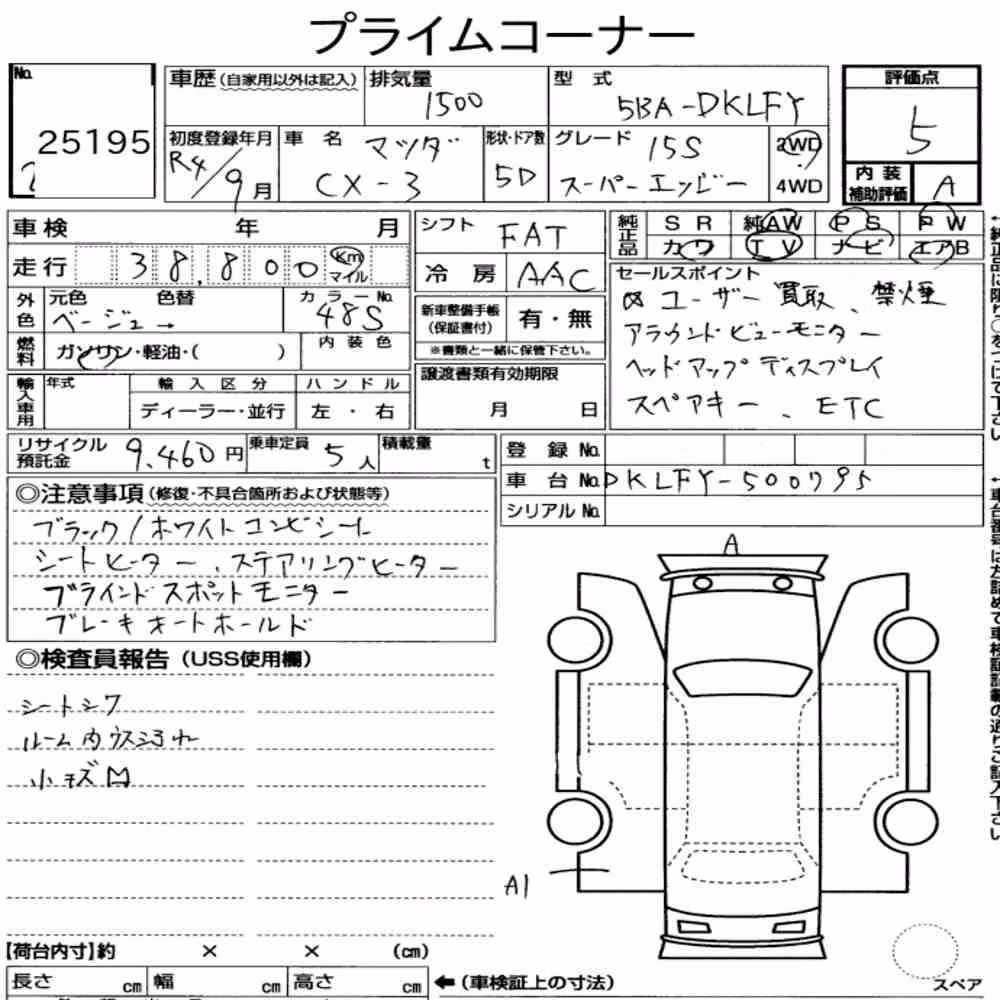 プライムコーナー
No.
25195
車歴(自家用以外は記入)
排気量
1500
型 式
5BA-DKLFY
評価点
5
初度登録年月
R4/9月
車 名
マツダ
CX-3
形状・ドア数
5D
グレード
15S
スーパーエッジー
2WD
4WD
内装補助評価
A
車検 年 月
シフト
FAT
純正品
SR 純AW PS PW
カワ TV ナビ エアB
走行 38,800 Km マイル
冷房
AAC
セールスポイント
ユーザー買取、禁煙
アラウンドビューモニター
ヘッドアップディスプレイ
スペアキー、ETC
外色
元色 色替
ベージュ→
カラーNo.
48S
新車整備手帳
(保証書付)
有・無
※書類と一緒に保管下さい。
燃料
ガソリン・軽油・( )
内装色
輸入車用
年式
輸入区分
ディーラー・並行
ハンドル
左・右
譲渡書類有効期限
月 日
リサイクル
預託金
9,460円
乗車定員
5人
積載量
t
登録No.
車台No. DKLFY-500795
シリアルNo.
◎注意事項(修復・不具合箇所および状態等)
ブラック/ホワイトコンビシート
シートヒーター、ステアリングヒーター
ブラインドスポットモニター
ブレーキオートホールド
◎検査員報告(USS使用欄)
シートシワ
ルーム内ウス汚れ
小キズ
A
A1
【荷台内寸】約 × × (cm)
長さ cm 幅 cm 高さ cm
←(車検証上の寸法)
スペア
←純正品に限り○をつけて下さい
←車台番号は左詰めで車検証記載の通りご記入下さい。